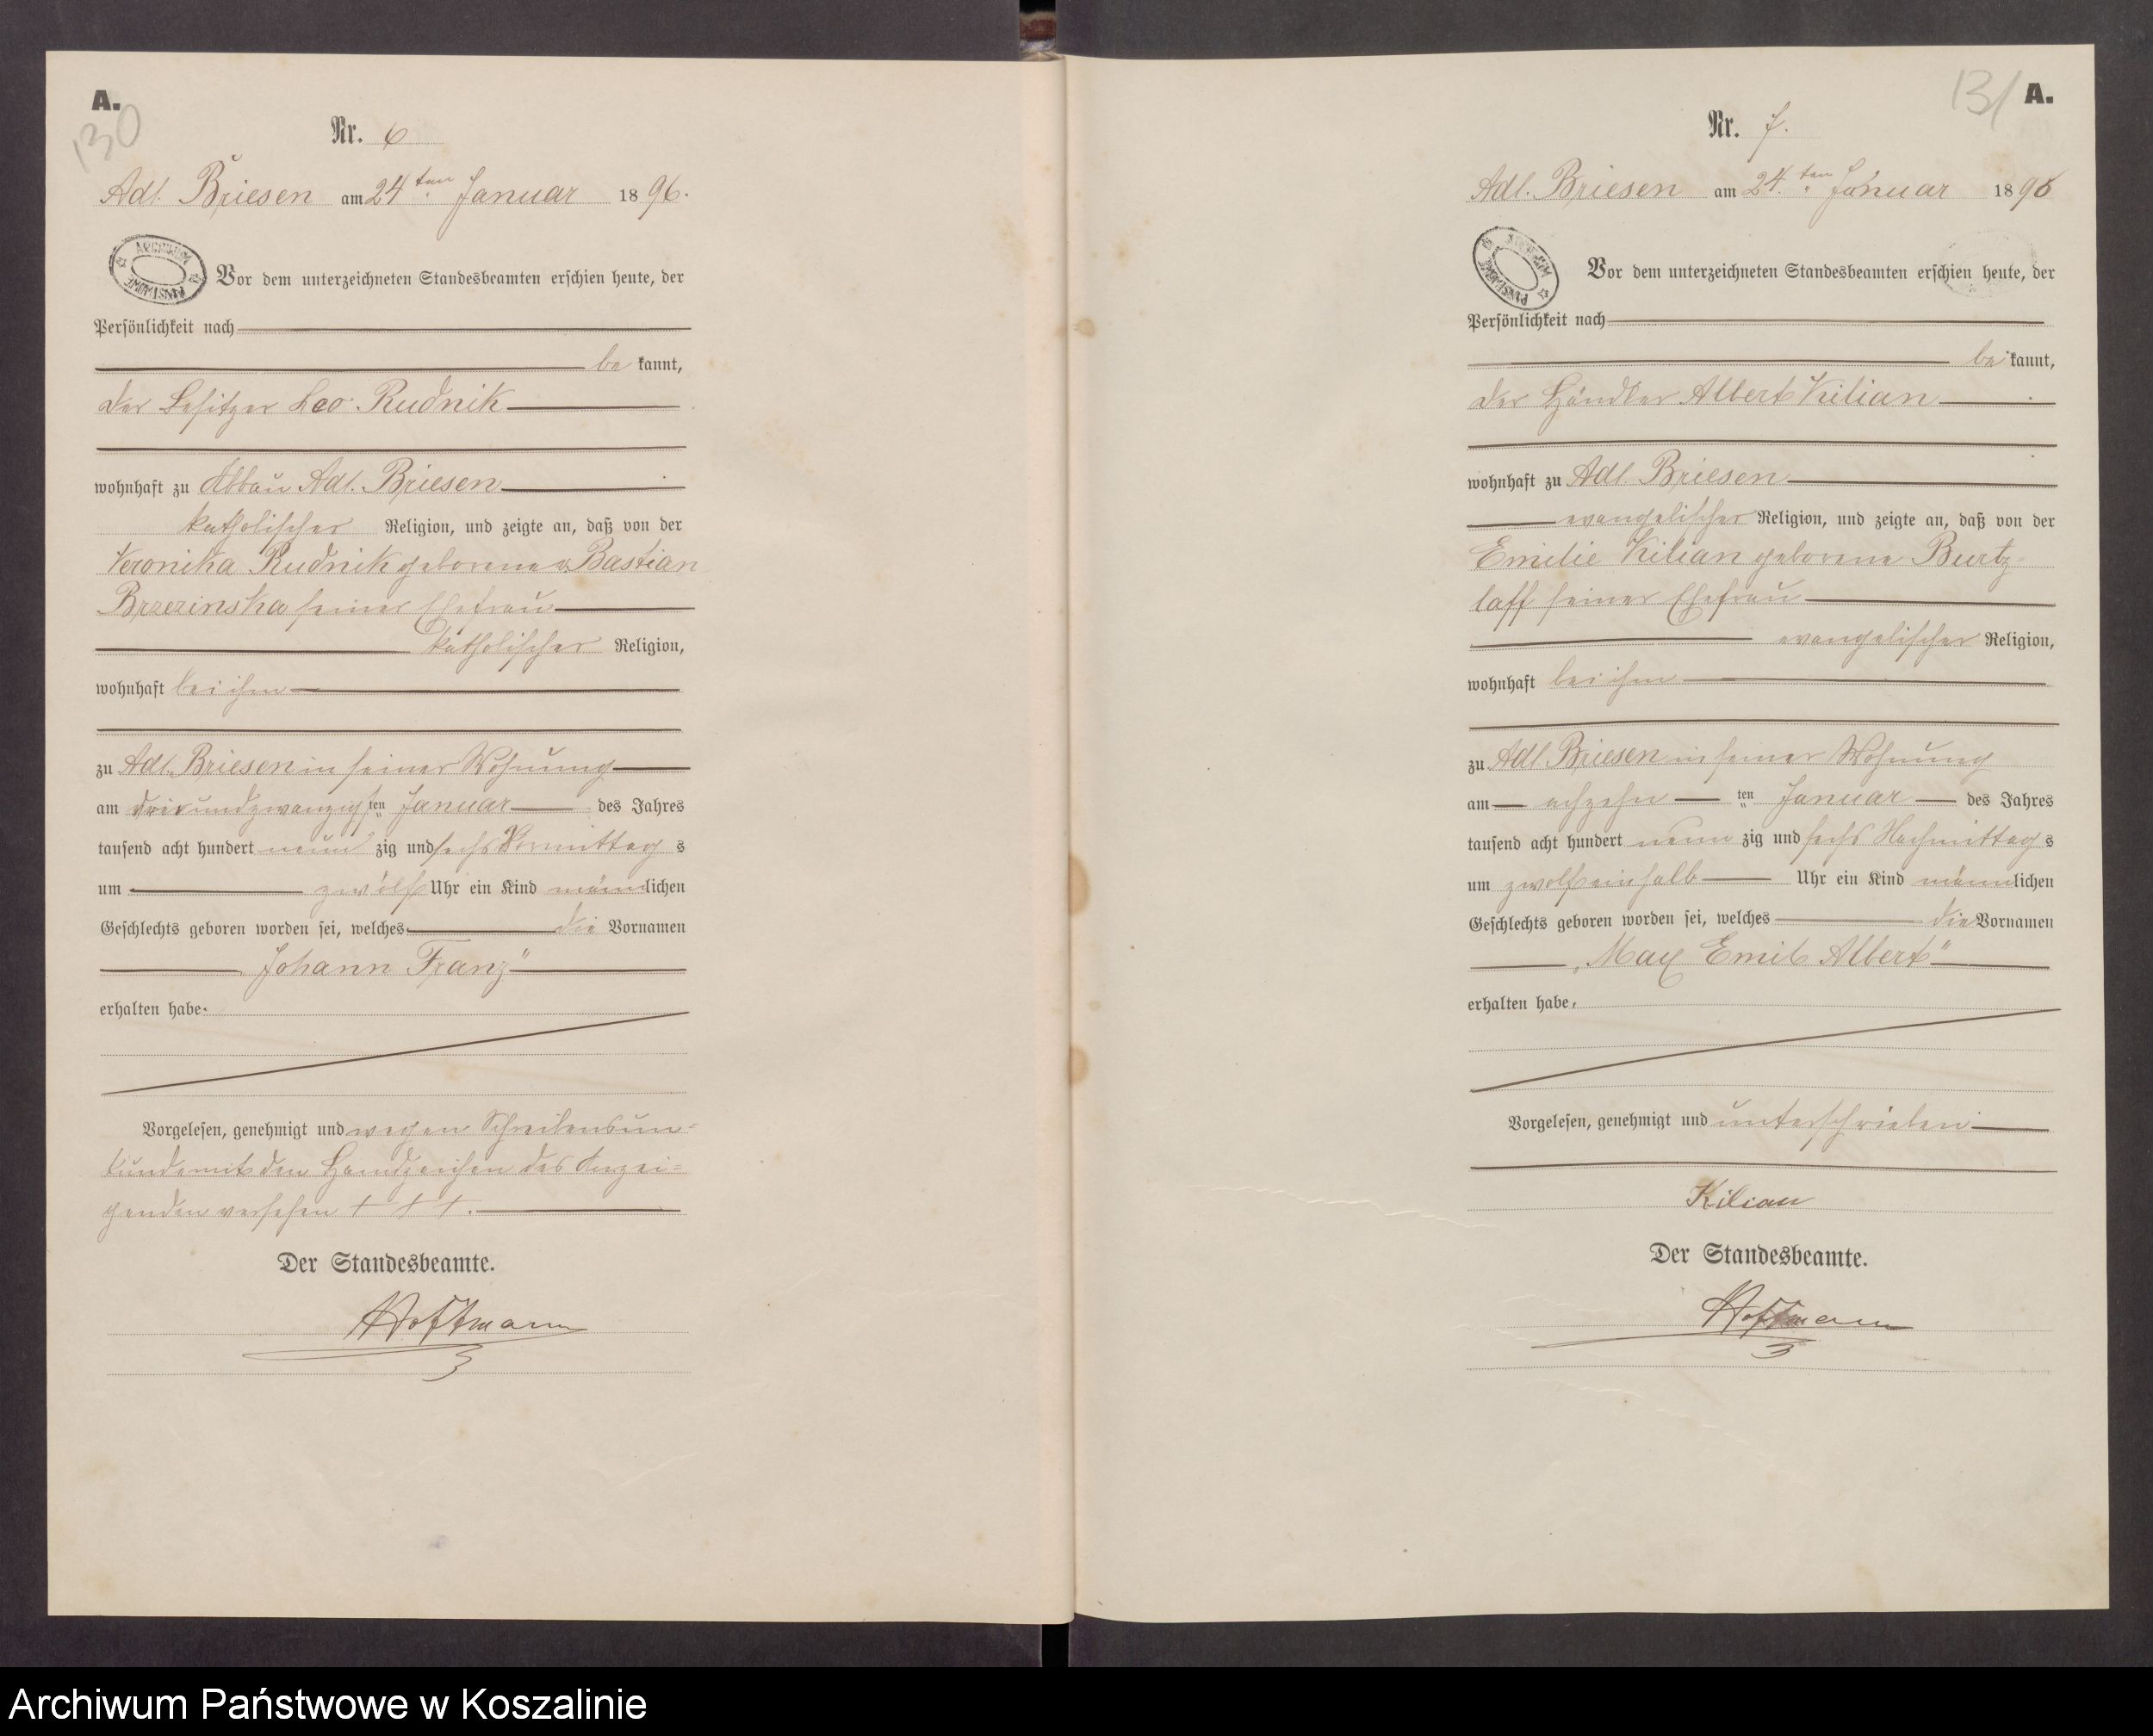 A.
130
Nr. 6
Adl. Briesen am 24ten Januar 1896.
ARCHIWUM PAŃSTWOWE
Vor dem unterzeichneten Standesbeamten erschien heute, der
Persönlichkeit nach
be kannt,
der Besitzer Leo Rudnik
wohnhaft zu Abbau Adl. Briesen
katholischer Religion, und zeigte an, daß von der
Veronika Rudnik geborene v. Bastian
Brzezinska seiner Ehefrau
katholischer Religion,
wohnhaft bei ihm
zu Adl. Briesen in seiner Wohnung
am dreiundzwanzigsten Januar des Jahres
tausend acht hundert neun zig und sechs Vormittag s
um zwölf Uhr ein Kind männlichen
Geschlechts geboren worden sei, welches die Vornamen
Johann Franz"
erhalten habe.
Vorgelesen, genehmigt und wegen Schreibensun-
kunde mit den Handzeichen des Anzei=
genden versehen + + +.
Der Standesbeamte.
Hoffmann
131 A.
Nr. 7.
Adl. Briesen am 24.ten Januar 1896
ARCHIWUM PAŃSTWOWE
Vor dem unterzeichneten Standesbeamten erschien heute, der
Persönlichkeit nach
be kannt,
der Händler Albert Kilian
wohnhaft zu Adl. Briesen
evangelischer Religion, und zeigte an, daß von der
Emilie Kilian geborene Burtz-
laff seiner Ehefrau
evangelischer Religion,
wohnhaft bei ihm
zu Adl. Briesen in seiner Wohnung
am achzehn ten Januar des Jahres
tausend acht hundert neun zig und sechs Nachmittag s
um zwölfeinhalb Uhr ein Kind männlichen
Geschlechts geboren worden sei, welches die Vornamen
„Max Emil Albert"
erhalten habe.
Vorgelesen, genehmigt und unterschrieben
Kilian
Der Standesbeamte.
Hoffmann
Archiwum Państwowe w Koszalinie